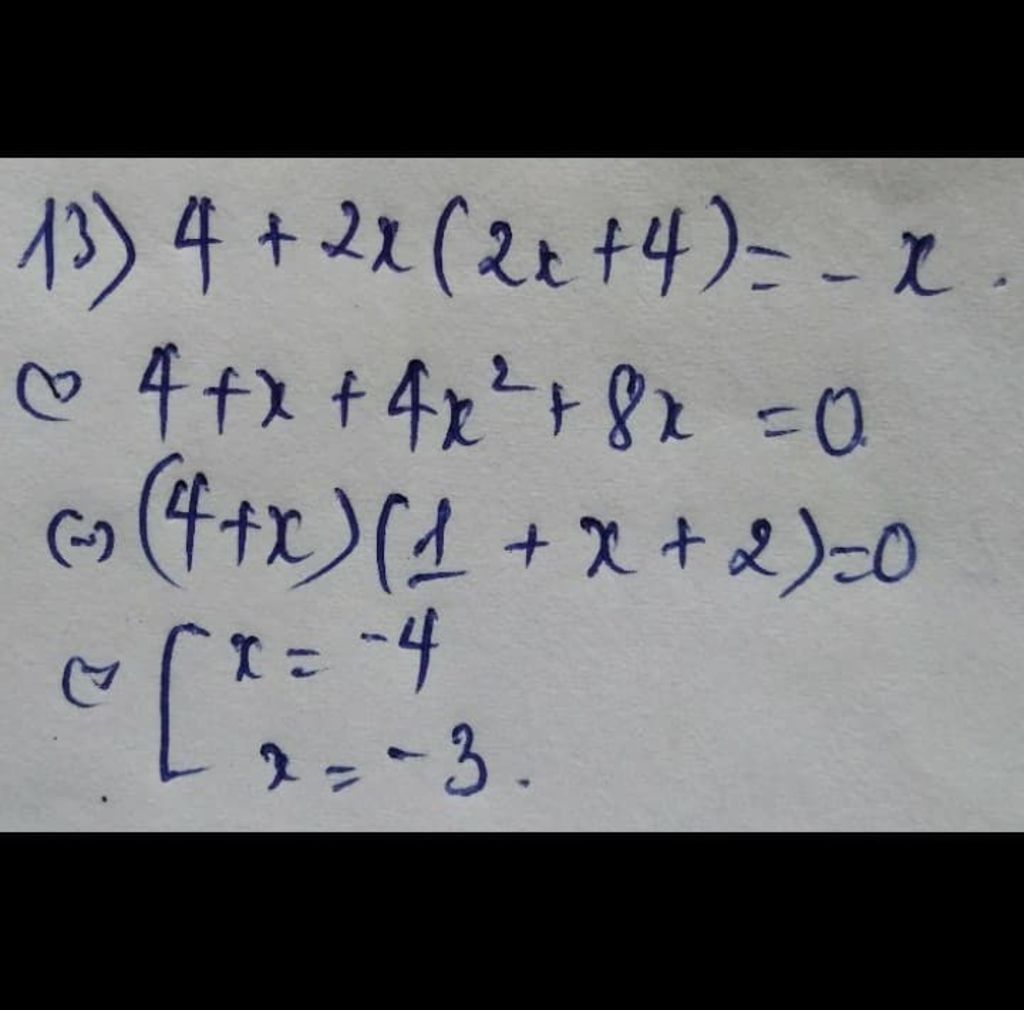 13) 4 + 2x(2x+4) = -x.
⇔ 4+x + 4x² + 8x = 0
⇔ (4+x)(1 + x + 2) = 0
⇔ [ x = -4
x = -3.